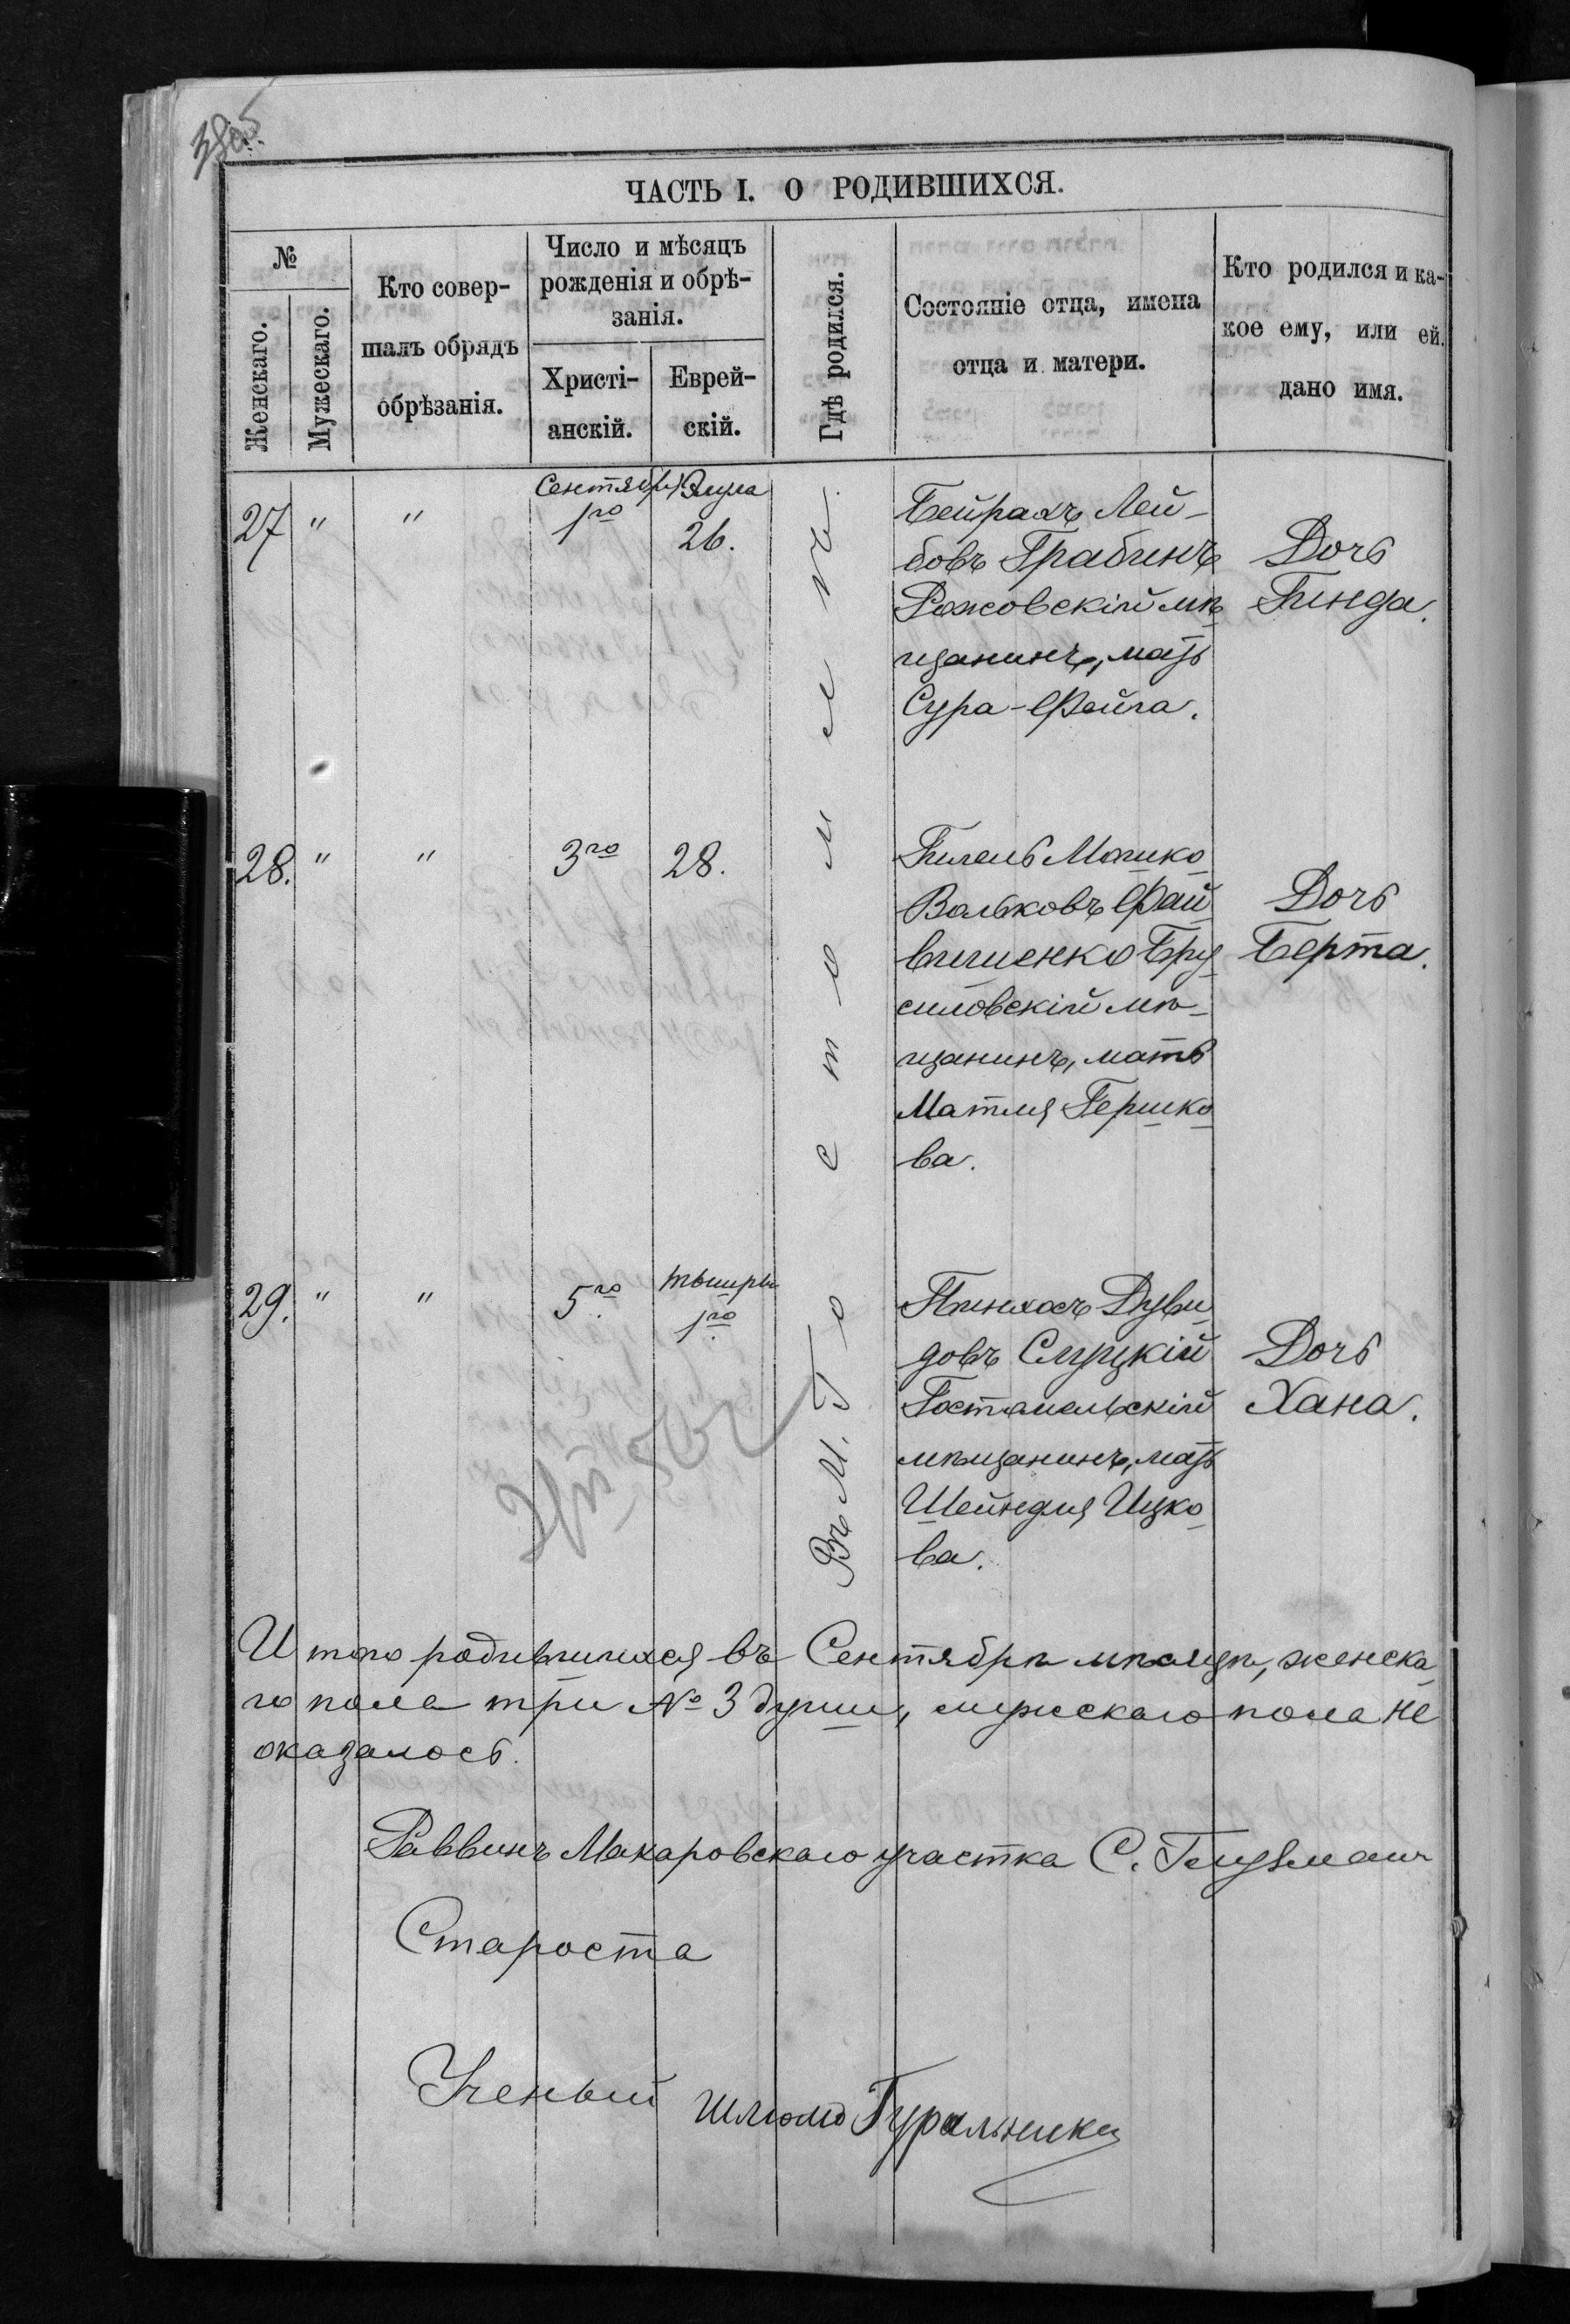 ЧАСТЬ I. О РОДИВШИХСЯ.
№
Женскаго.
Мужескаго.
Кто совер-
шалъ обрядъ
обрѣзанія.
Число и мѣсяцъ
рожденія и обрѣ-
занія.
Христі-
анскій.
Еврей-
скій.
Гдѣ родился.
Состояніе отца, имена
отца и матери.
Кто родился и ка-
кое ему, или ей.
дано имя.
Сентября Элула
27 " " 1го 26.
Бейрахъ Лей-
бовъ Грабинъ
Рожовскій мѣ
щанинъ, мать
Сура-Фейга.
Дочь
Гинда.
28. " " 3го 28.
Гилель Мошко
Вольковъ Фай
вишенко Бру
силовскій мѣ-
щанинъ, мать
Матля Гершко
ва.
Дочь
Берта.
29. " " 5го Тышри 1го
Пинхосъ Дуви
довъ Слуцкій
Гостомельскій
мѣщанинъ, мать
Шейндля Ицко
ва.
Дочь
Хана.
Въ М. Гостомелѣ
Итого родившихся въ Сентябрѣ мѣсяцѣ, женска
го пола три № 3 души, мужскаго пола не
оказалось.
Раввинъ Макаровскаго участка С. Глузманъ
Староста
Ученый Шлюмо Гуральникъ